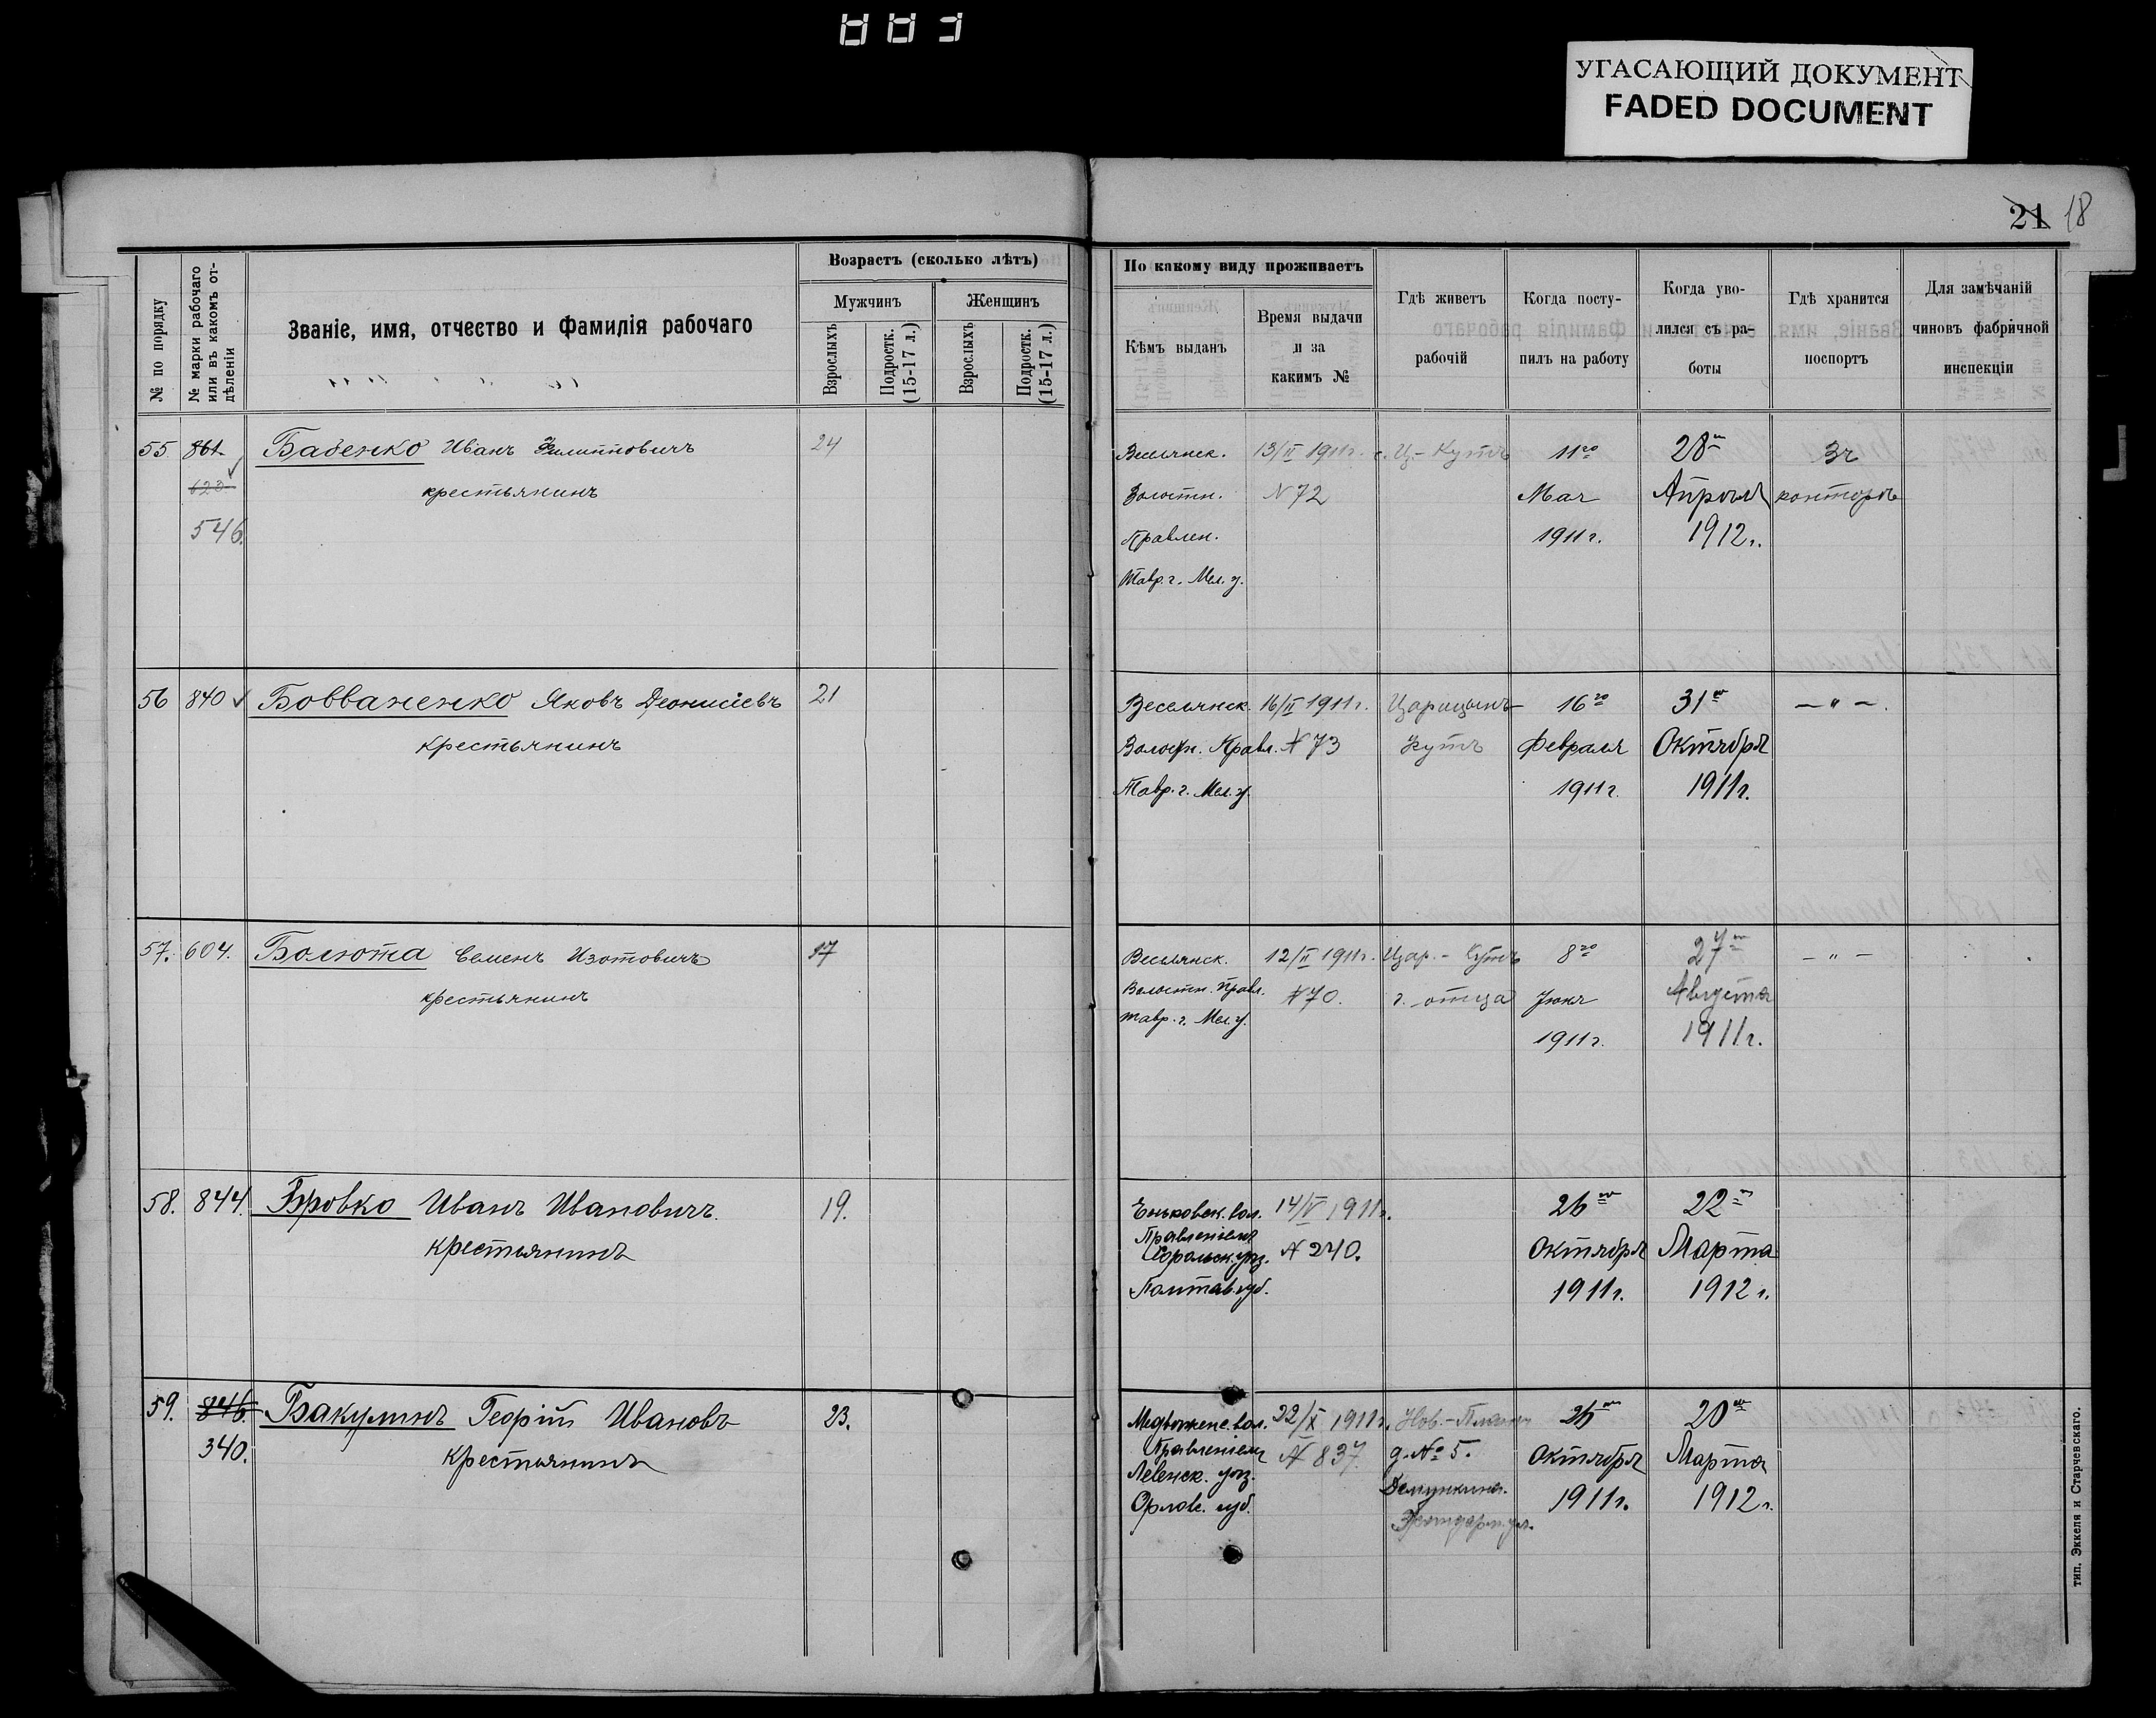 УГАСАЮЩИЙ ДОКУМЕНТ
FADED DOCUMENT
21 18
№ по порядку
№ марки рабочаго или въ какомъ от-дѣленіи
Званіе, имя, отчество и фамилія рабочаго
Возрастъ (сколько лѣтъ)
Мужчинъ
Женщинъ
Взрослыхъ
Подростк. (15-17 л.)
Взрослыхъ
Подростк. (15-17 л.)
По какому виду проживаетъ
Кѣмъ выданъ
Время выдачи
и за
какимъ №
Гдѣ живетъ
рабочій
Когда посту-
пилъ на работу
Когда уво-
лился съ ра-
боты
Гдѣ хранится
поспортъ
Для замѣчаній
чиновъ фабричной
инспекціи
55 861 Бабенко Иванъ Филипповичъ 24
623
крестьянинъ
546.
Весьянск. 13/II 1911г. с. Ц.-Кутъ 11го 28го Зг
Волостн. N 72 Мая Апрѣля конторѣ
Правлен. 1911 г. 1912 г.
Тавр. г. Мел. у.
56 840 Бовваненко Яковъ Деонисіевъ 21
крестьянинъ
Весельянск. 16/II 1911 г. Царицынъ- 16го 31го — " —.
Волостн. Правл. N 73 Кутъ Февраля Октября
Тавр. г. Мел. у. 1911 г. 1911 г.
57. 604. Болюта Семенъ Изотовичъ 17
крестьянинъ
Весьлянск. 12/II 1911 г. Цар.-Кутъ 8го 27го — " —
Волостн. Правл. N 70. г. отца Іюня Августа
Тавр. г. Мел. у. 1911 г. 1911 г.
58. 844. Бровко Иванъ Ивановичъ. 19.
крестьянинъ
Еньковск. вол. 14/IV 1911 г. 26го 22го
Правленіемъ
Хорольск. уѣз. N 240. Октября Марта
Полтав. губ. 1911 г. 1912 г.
59. 846. Бакулинъ Георгій Ивановъ 23.
340. крестьянинъ
Медвѣженс. вол. 22/X 1911 г. Нов.-Планъ 26го 20го
Правленіемъ N 837. д. № 5. Октября Марта
Ливенск. уѣз. 1911 г. 1912 г.
Орлов. губ.
тип. Эккеля и Старчевскаго.